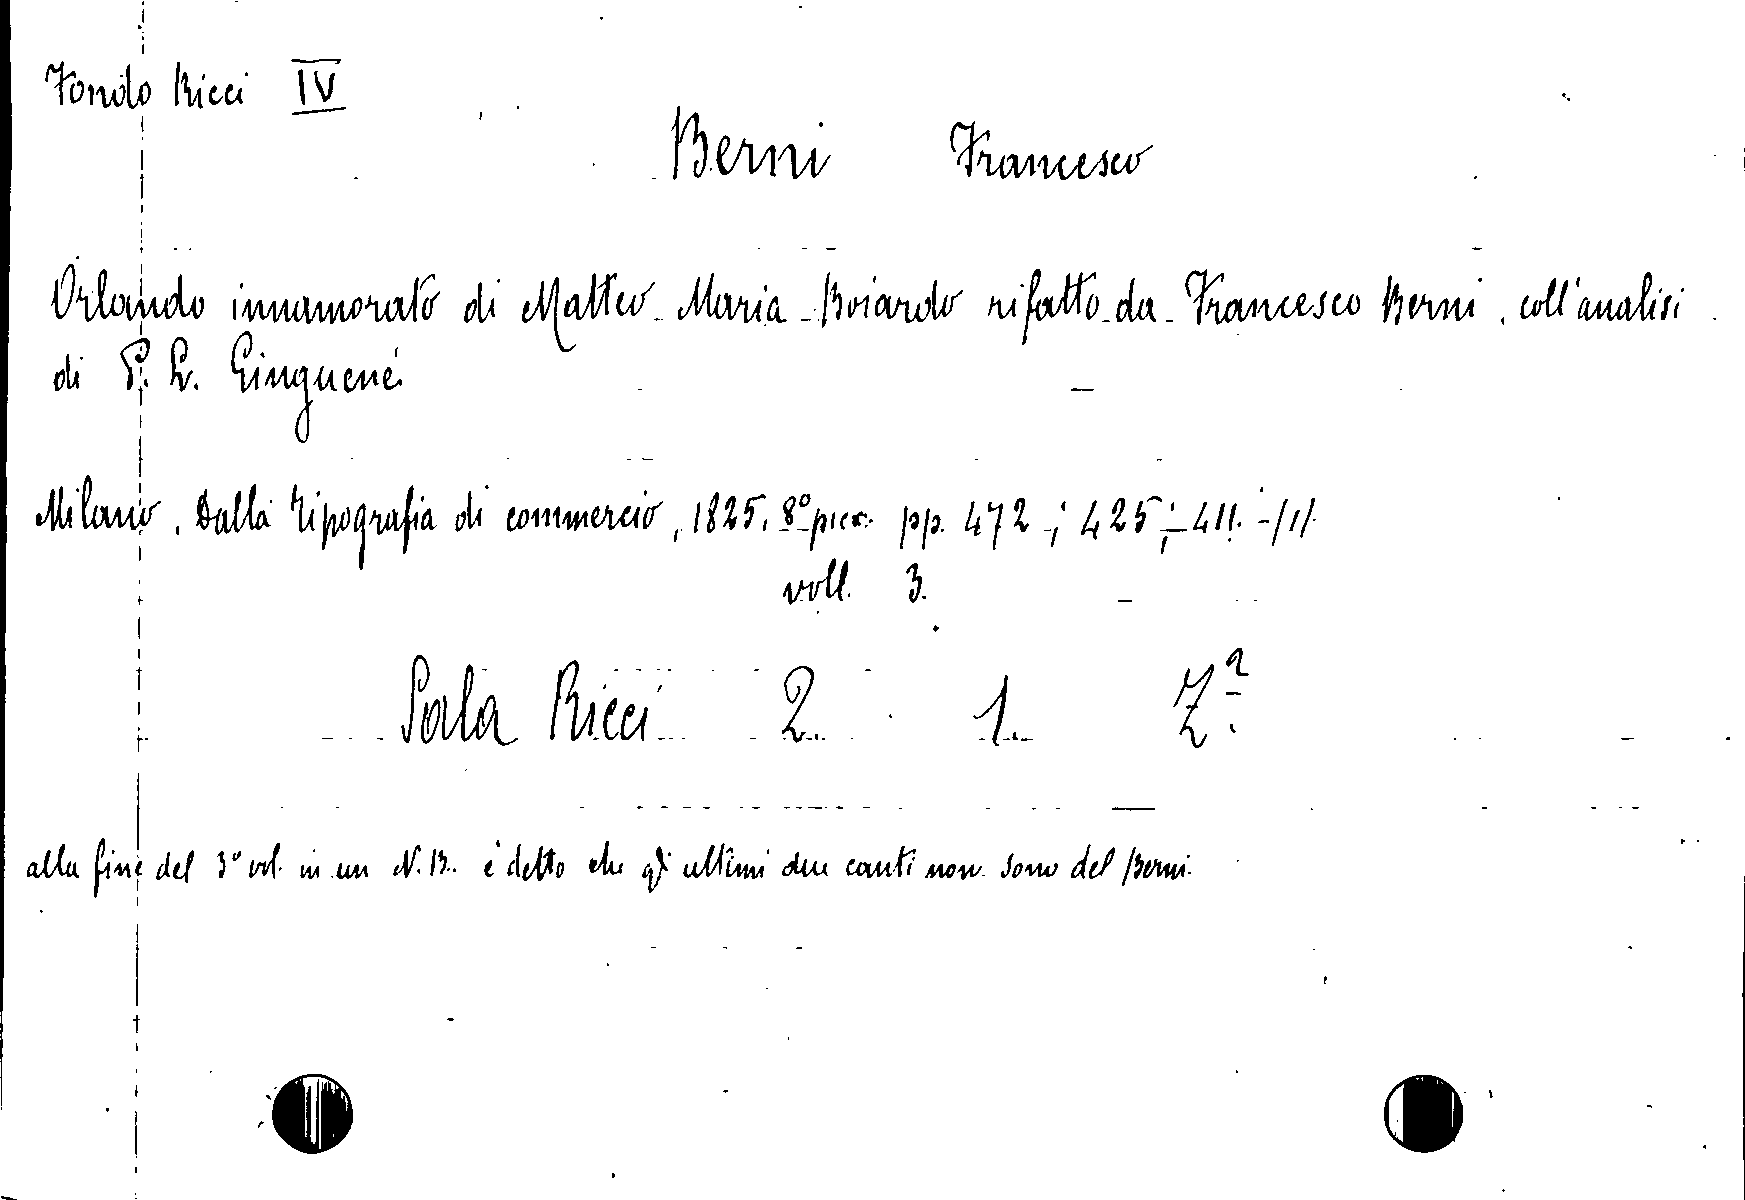 Fondo Ricci IV
Berni Francesco
Orlando innamorato di Matteo Maria Boiardo rifatto da Francesco Berni, coll'analisi
di P. L. Ginguené
Milano, Dalla tipografia di commercio, 1825, 8° picc. pp. 472 ; 425 ; 411.
voll. 3.
Sala Ricci 2. 1. 7ª
alla fine del 3° vol. in un N.B. è detto che gli ultimi due canti non sono del Berni.